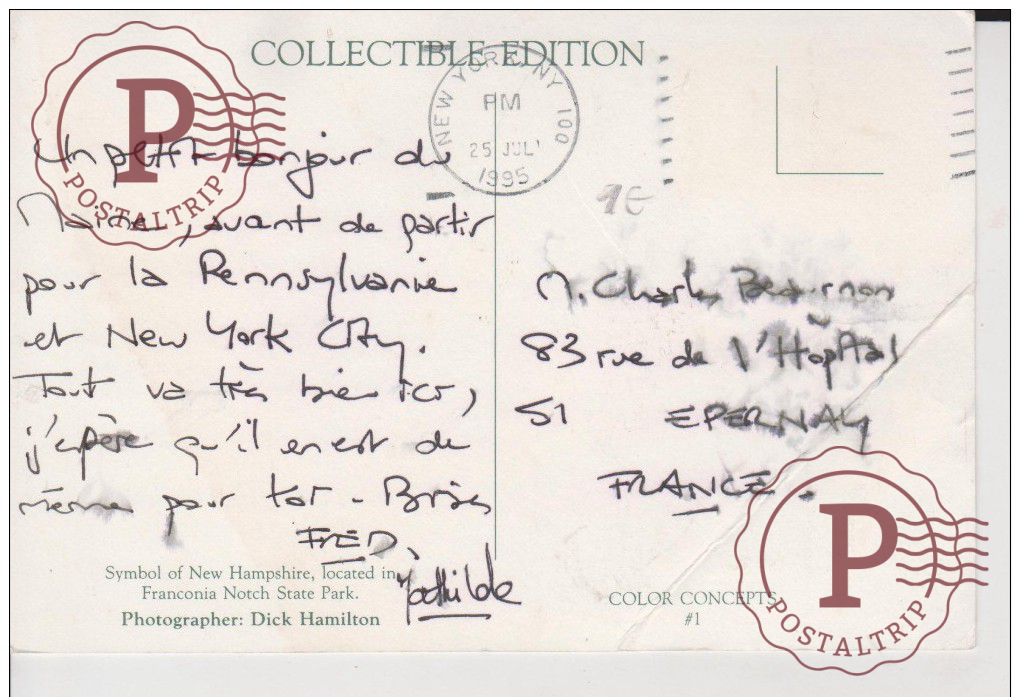 COLLECTIBLE EDITION
NEW YORK, NY 100
PM
25 JUL
1995
1E
Un petit bonjour du
Maine, avant de partir
pour la Pennsylvanie
et New York City.
Tout va très bien ici,
j'espère qu'il en est de
même pour toi - Bises
FRED,
Mathilde
M. Charles
83 rue de l'Hopital
51 EPERNAY
FRANCE.
Symbol of New Hampshire, located in
Franconia Notch State Park.
Photographer: Dick Hamilton
COLOR CONCEPTS
#1
P
POSTALTRIP
P
POSTALTRIP